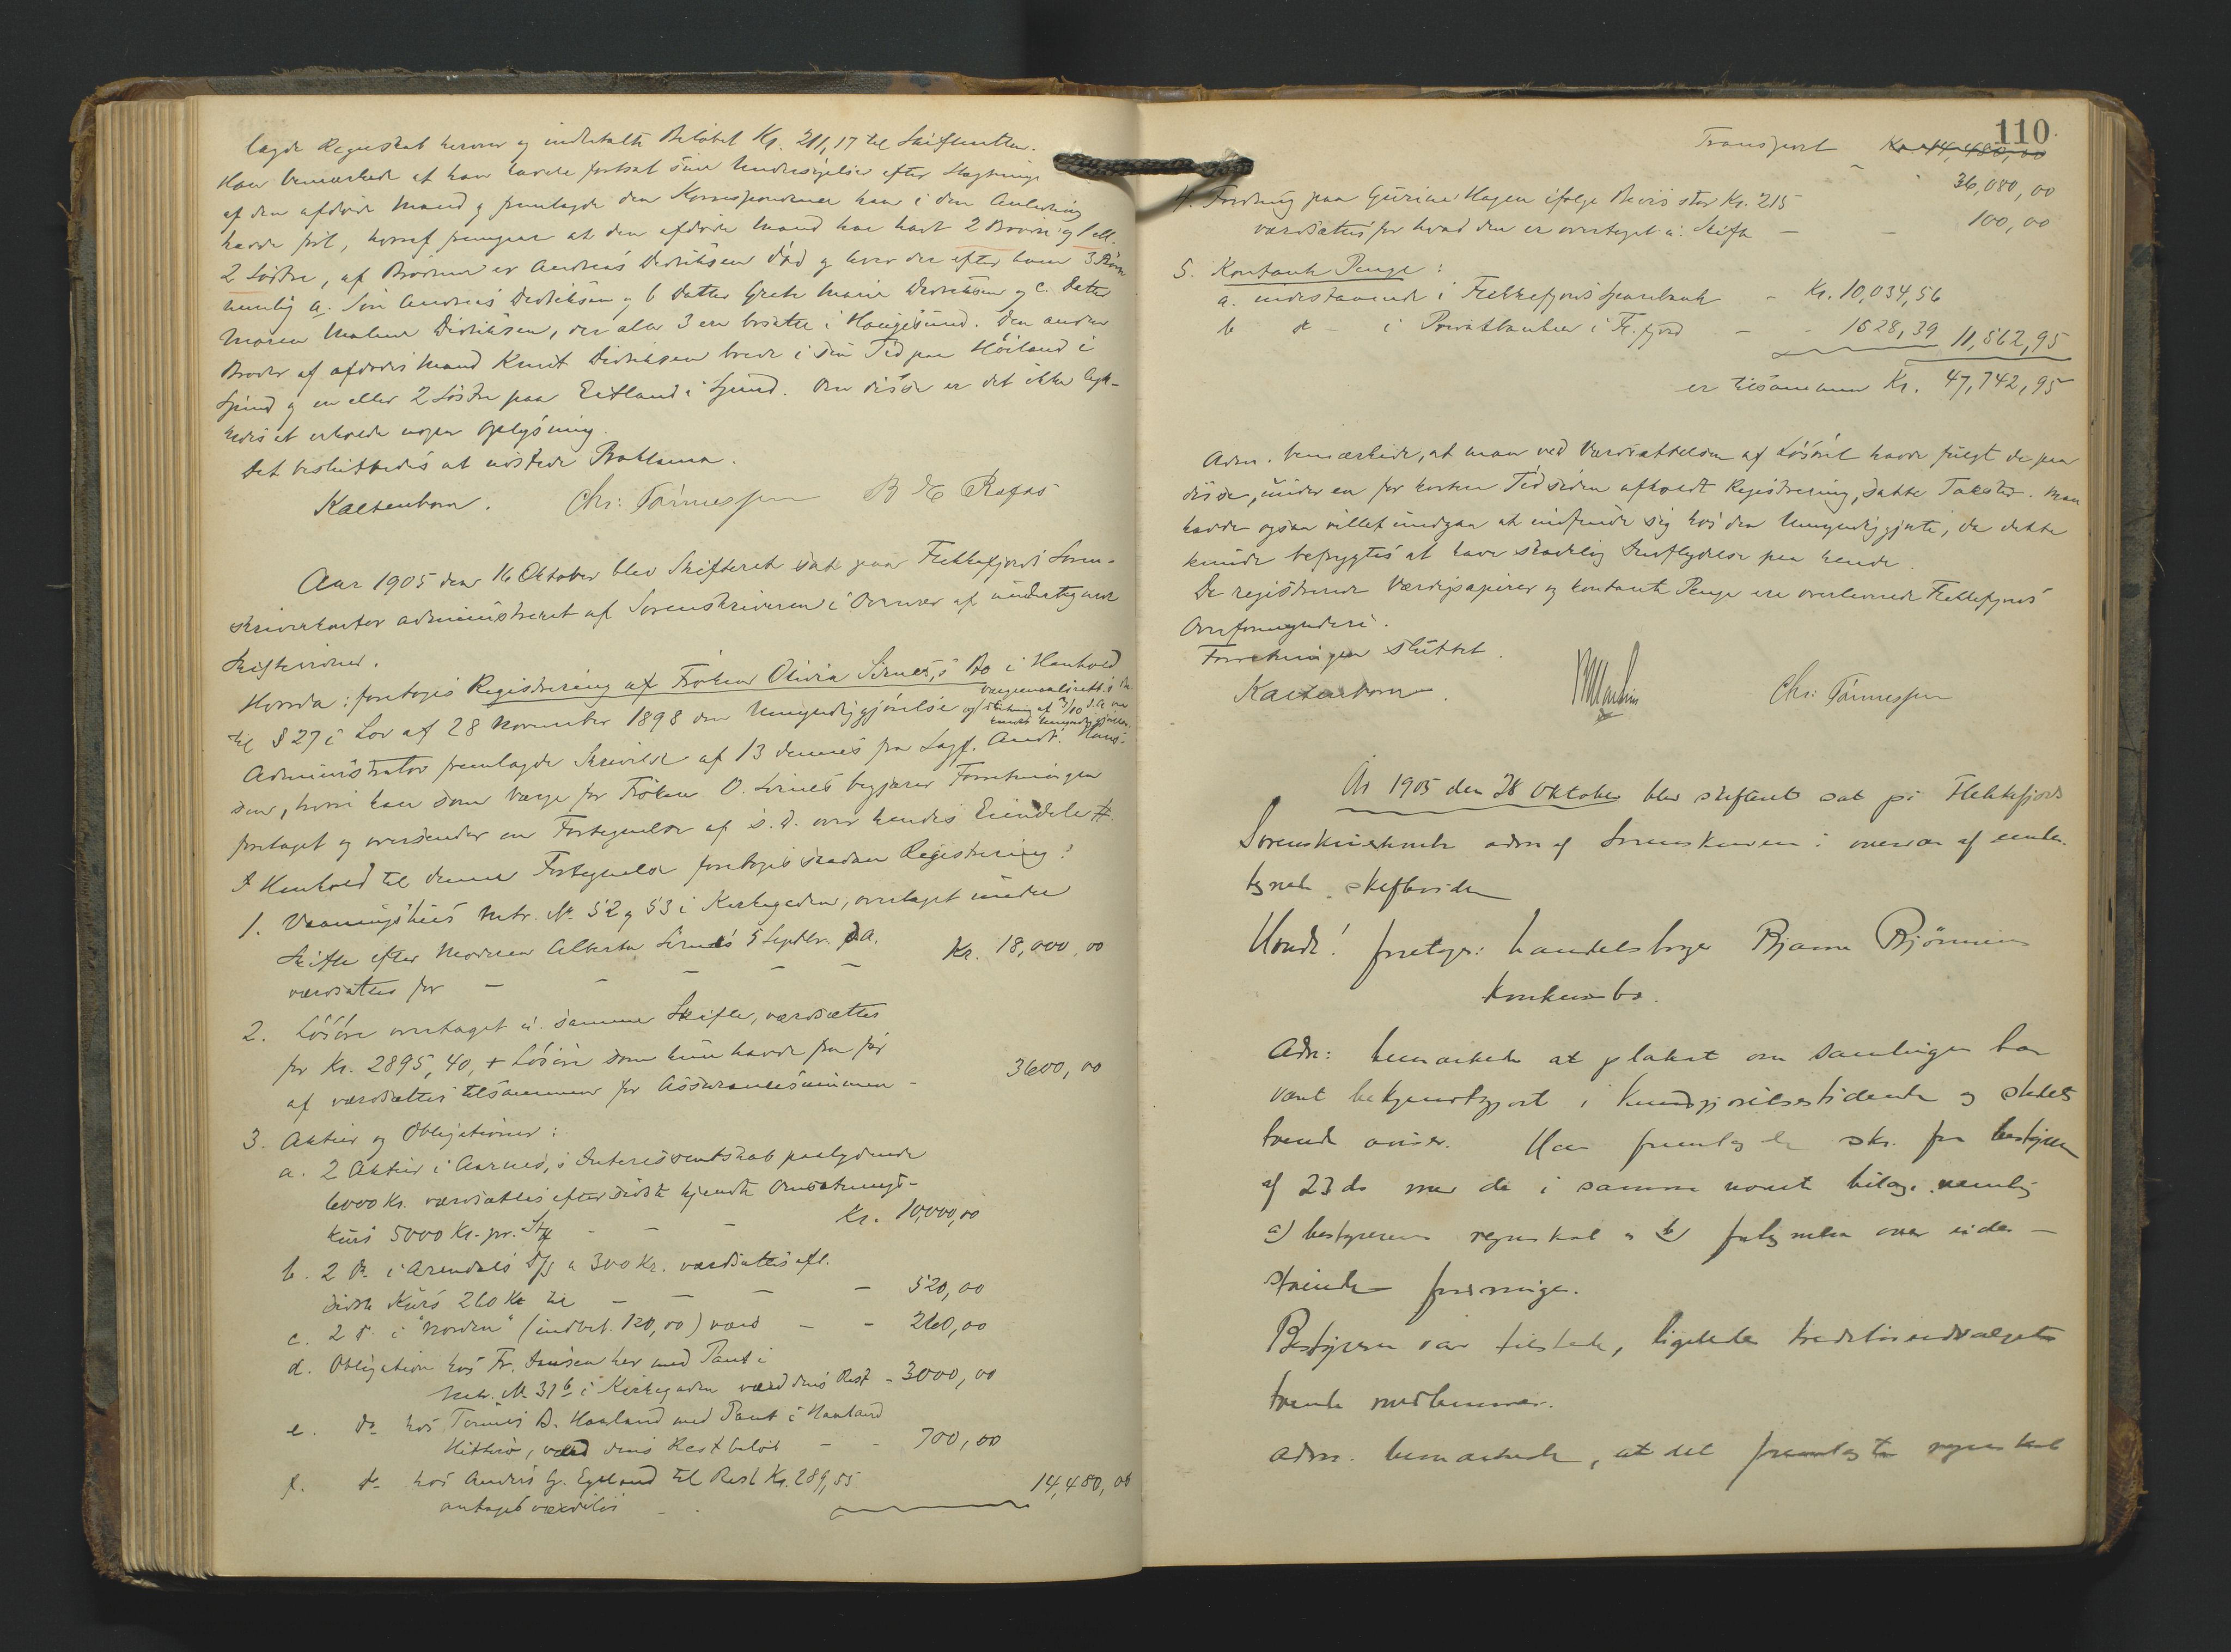 lagde Regnskab herover og indbetalte Beløbet Kr. 211,17 til Skifteretten.
Han bemærkede at han havde fortsat sine Undersøgelser efter Slægtninge
af den afdøde Mand og fremlagde den Korrespondence han i den Anledning
havde ført, hvoraf fremgaar at den afdøde Mand har havt 2 Brødre og 1 ell.
2 Søstre, af Brødrene er Andreas Didriksen død og lever der efter ham 3 Børn
nemlig a. Søn Andreas Didriksen og b Datter Grete Marie Didriksen og c. Datter
Maren Malene Didriksen, der alle 3 ere bosatte i Haugesund. Den anden
Broder af afdødes Mand Knut Didriksen boede i sin Tid paa Høiland i
Spind og en eller 2 Søstre paa Eitland i Spind. Om disse er det ikke lyk-
kedes at erholde nogen Oplysning.
Det besluttedes at udstede Proklama.
Kaltenborn. Chr: Tønnessen B H Rafos
Aar 1905 den 16 Oktober blev Skifteret sat paa Flekkefjords Soren-
skriverkontor administreret af Sorenskriveren i Overvær af undertegnede
Skiftevidner.
Hvorda: foretoges Registrering af Frøken Olivia Sirnes,s Bo i Henhold
til § 27 i Lov af 28 November 1898 om Umyndiggjørelse og Vergemaalsrett.s
Slutning af 3/10 d.A. om
hendes Umyndiggjørelse.
Administrator fremlagde Skrivelse af 13 dennes fra Sagf. Andr. Hans-
sen, hvori han som Værge for Frøken O. Sirnes begjærer Forretningen
foretaget og oversender en Fortegnelse af s. D. over hendes Eiendele #.
I Henhold til denne Fortegnelse foretoges saadan Registrering:
1. Vaaningshus Matr. № 52 og 53 i Kirkegaden, overtaget under
Skifte efter Moderen Alberta Sirnes 5 Septbr. d.A.
værdsættes for - - - - Kr. 18,000,00
2. Løsøre overtaget u. samme Skifte, værdsættes
for Kr. 2895,40, + Løsøre som hun havde fra før
af værdsættes tilsammen for Assurancesummen - 3600,00
3. Aktier og Obligationer:
a. 2 Aktier i Aarnes,s Interessentskab paalydende
6000 Kr. værdsættes efter sidste kjendte Omsætnings-
kurs 5000 Kr. pr. Stk - - - Kr. 10,000,00
b. 2 Do i Arendals a 300 Kr. værdsættes eft.
sidste Kurs 260 Kr til - - - - 520,00
c. 2 Do i "Norden" (indbet. 120,00) værd - - 260,00
d. Obligation hos Fr. Jansen her med Pant i
Matr. № 31b i Kirkegaden værd dens Rest - 3000,00
e. Do hos Tønnes B. Haaland med Pant i Haaland
Hitterø, værd dens Restbeløb - - 700,00
f. Do hos Anders G. Egeland til Rest Kr. 289,55
antages værdiløs - . 14,480,00
110
Transport Kr 14,480,00
- - 36,080,00
4. Fordring paa Gurine Hagen ifølge Bevis stor Kr. 215
værdsættes for hvad den er overtaget u. Skifte - - 100,00
5. Kontante Penge:
a. indestaaende i Flekkefjords Sparebank - Kr. 10,034,56
b do - i Privatbanken i Fl.fjord - - 1528,39 11,562,95
er tilsammen Kr. 47,742,95
Adm. bemærkede, at man ved Værdsættelsen af Løsøret havde fulgt de paa
disse, under en for kortere Tid siden afholdt Registrering, satte Takster. Man
havde ogsaa villet undgaa at indfinde sig hos den Umyndiggjorte, da dette
kunde befrygtes at have skadelig Indflydelse paa hende.
De registrerede Værdipapirer og kontante Penge ere overleverede Flekkefjords
Overformynderi.
Forretningen sluttet.
Kaltenborn. Chr: Tønnessen
År 1905 den 28 Oktober blev skifteret sat på Flekkefjords
Sorenskriverkontor adm af Sorenskriveren i overvær af under-
tegnede skiftevidner
Hvorda! foretoges: handelsborger Bjarne Bjønnes
konkursbo.
Adm: bemærkede at plakat om samlingen har
været bekjendtgjort i Kundgjørelsestidende og stedets
tvende aviser. Han fremlagde skr. fra bestyreren
af 23 ds med de i samme nævnte bilage nemlig
a) bestyrerens regnskab og b) fortegnelse over ude-
stående fordringer.
Bestyreren var tilstede, ligeledes kreditorudvalgets
tvende medlemmer.
Adm. bemærkede, at det fremlagte regnskab